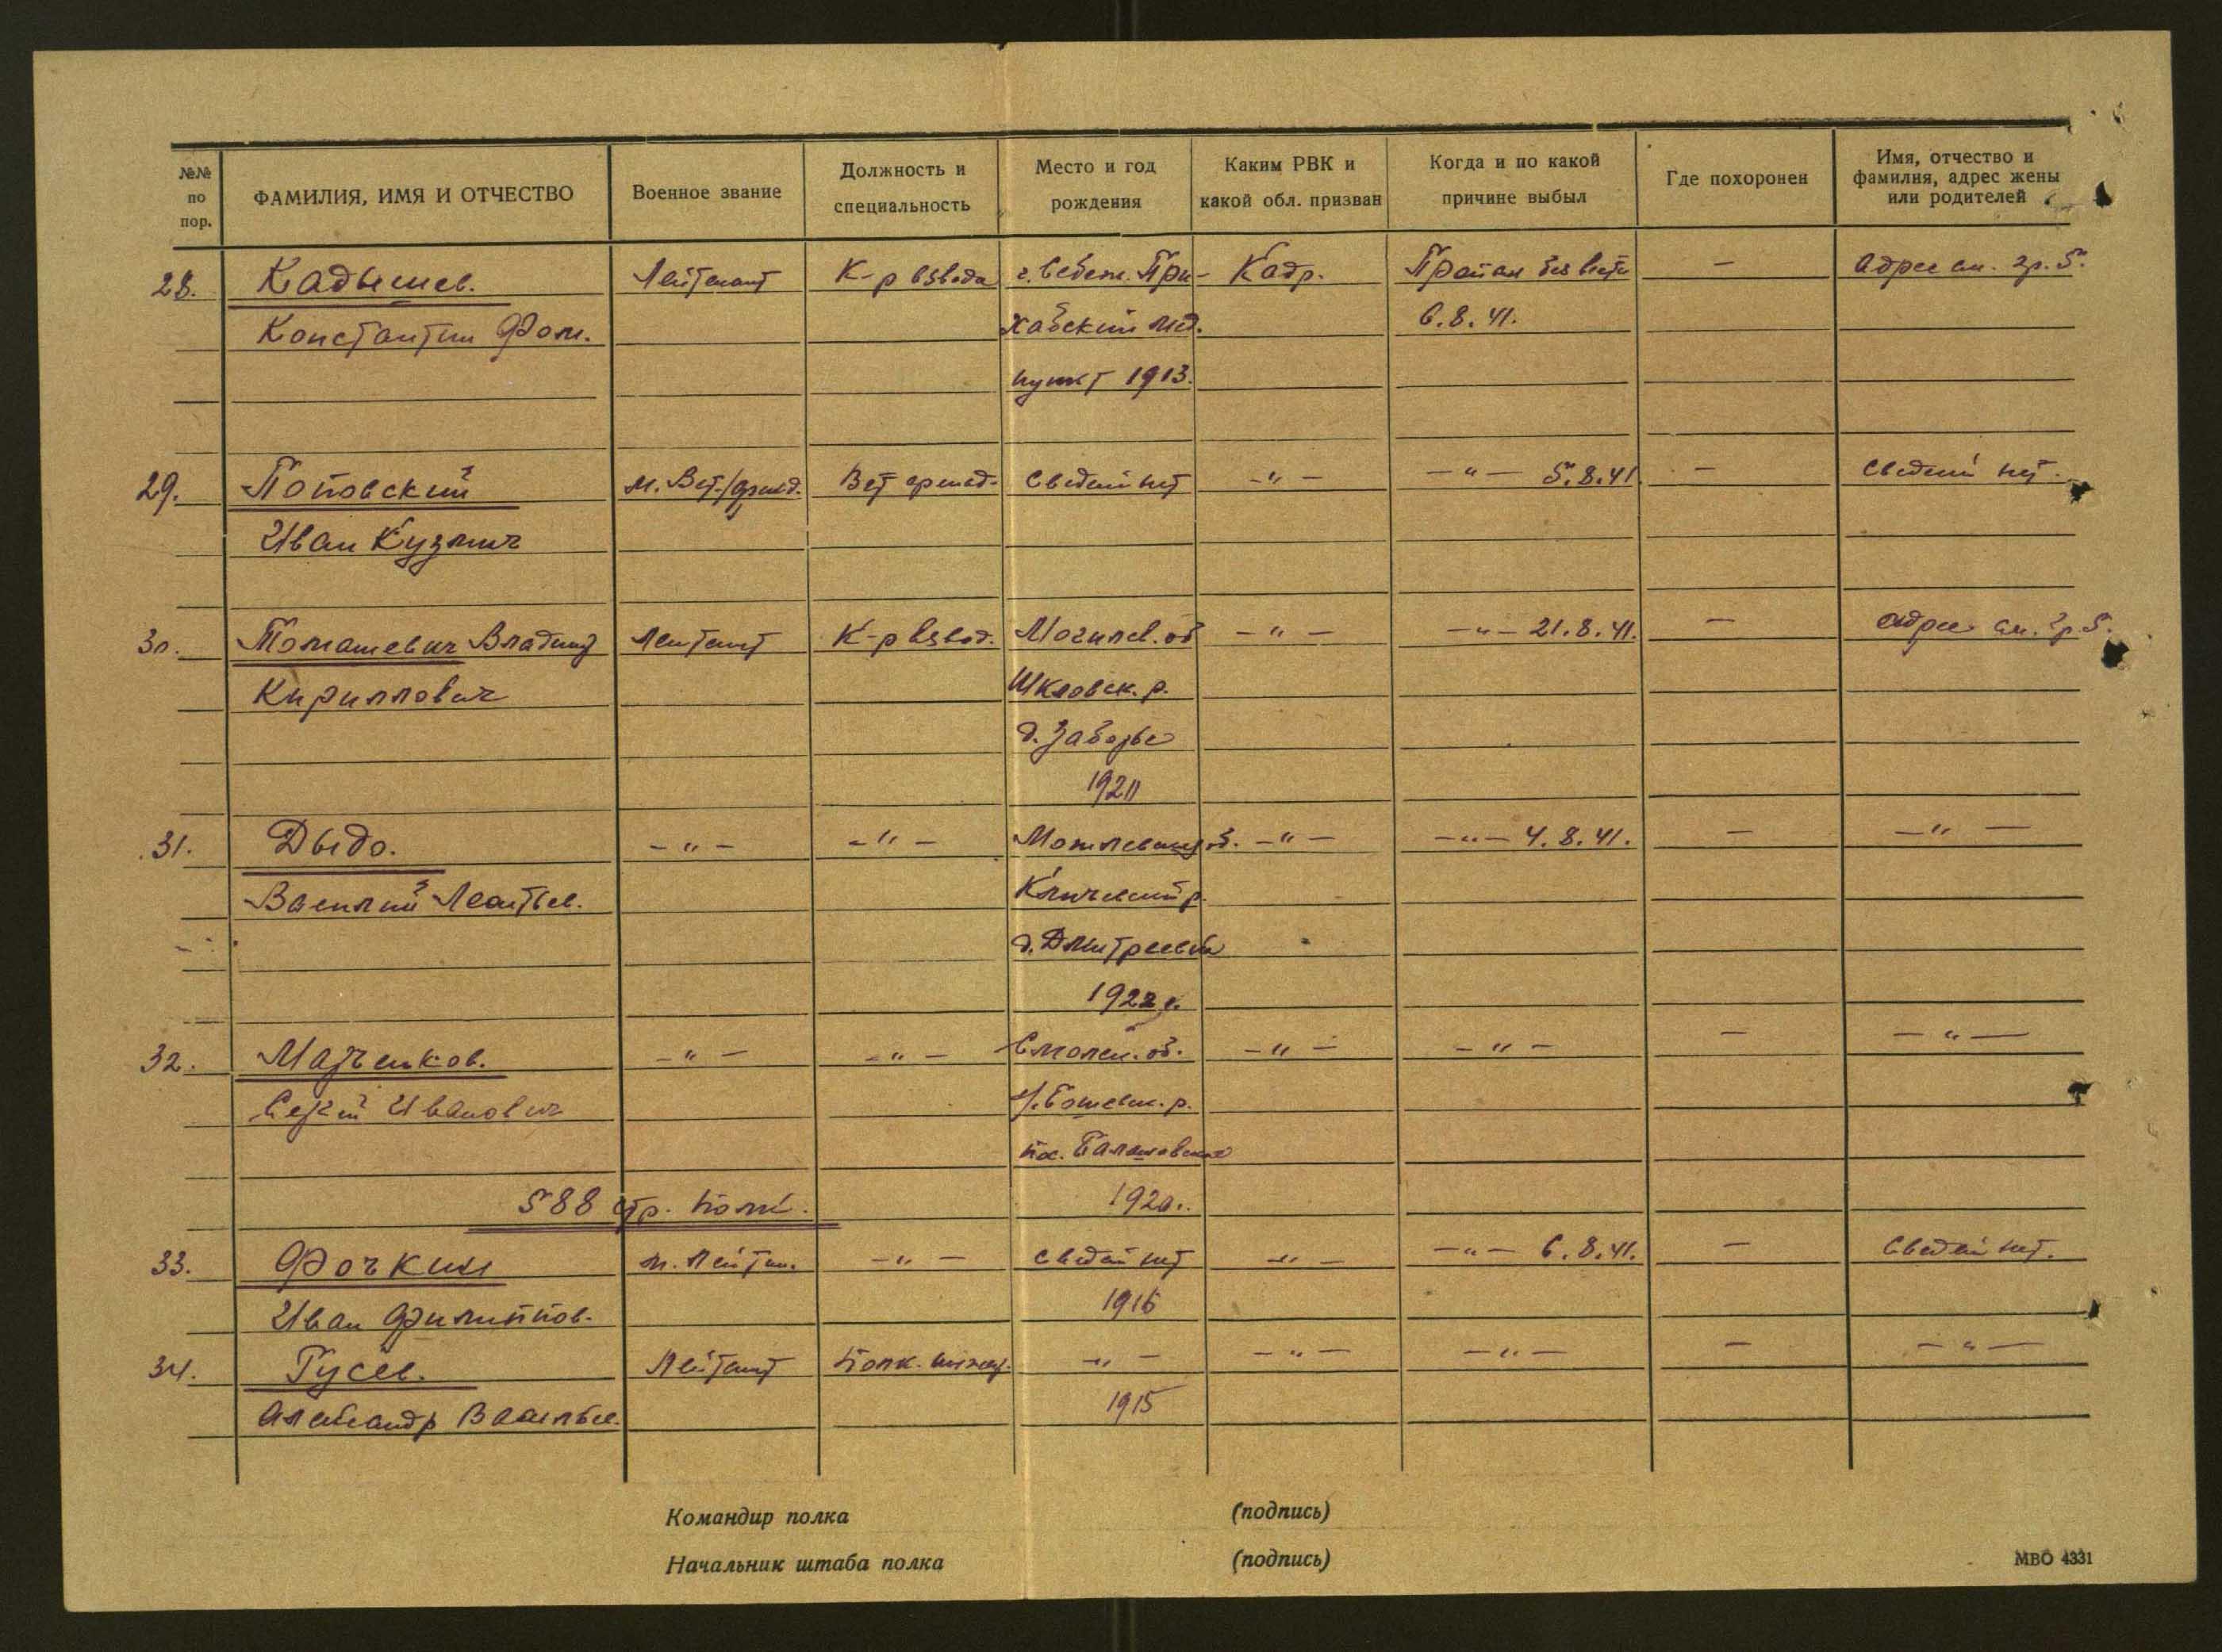 №№ по пор.
ФАМИЛИЯ, ИМЯ И ОТЧЕСТВО
Военное звание
Должность и специальность
Место и год рождения
Каким РВК и какой обл. призван
Когда и по какой причине выбыл
Где похоронен
Имя, отчество и фамилия, адрес жены или родителей
28. Кадышев. Лейтенант К-р взвода г. Себеж. При- Кадр. Пропал без вести — Адрес см. гр. 5.
Константин Фом. хабский мед. 6.8.41.
пункт 1913.
29. Поповский м. Вет./фельд. Вет фельд. Сведений нет -"- -"- 5.8.41 — Сведений нет.
Иван Кузмич
30. Томашевич Владимир Лейтенант К-р взвод. Могилев. об -"- -"- 21.8.41. — Адрес см. гр. 5.
Кириллович Шкловск. р.
д. Заборье
1920
31. Дыдо. -"- -"- об. -"- -"- 4.8.41. — -"-
Василий Леонтьев. Кличевский р.
д. Дмитреевка
1922 г.
32. Матченков. -"- -"- Смолен. об. -"- -"- — -"-
Сергей Иванович р.
пос.
588 стр. полк. 1920.
33. Фочкин м. Лейтен. -"- Сведений нет -"- -"- 6.8.41. — Сведений нет.
Иван Филиппов. 1916
34. Гусев. Лейтенант Полк. инжен. -"- -"- -"- — -"-
Александр Васильев. 1915
Командир полка (подпись)
Начальник штаба полка (подпись)
МВО 4331